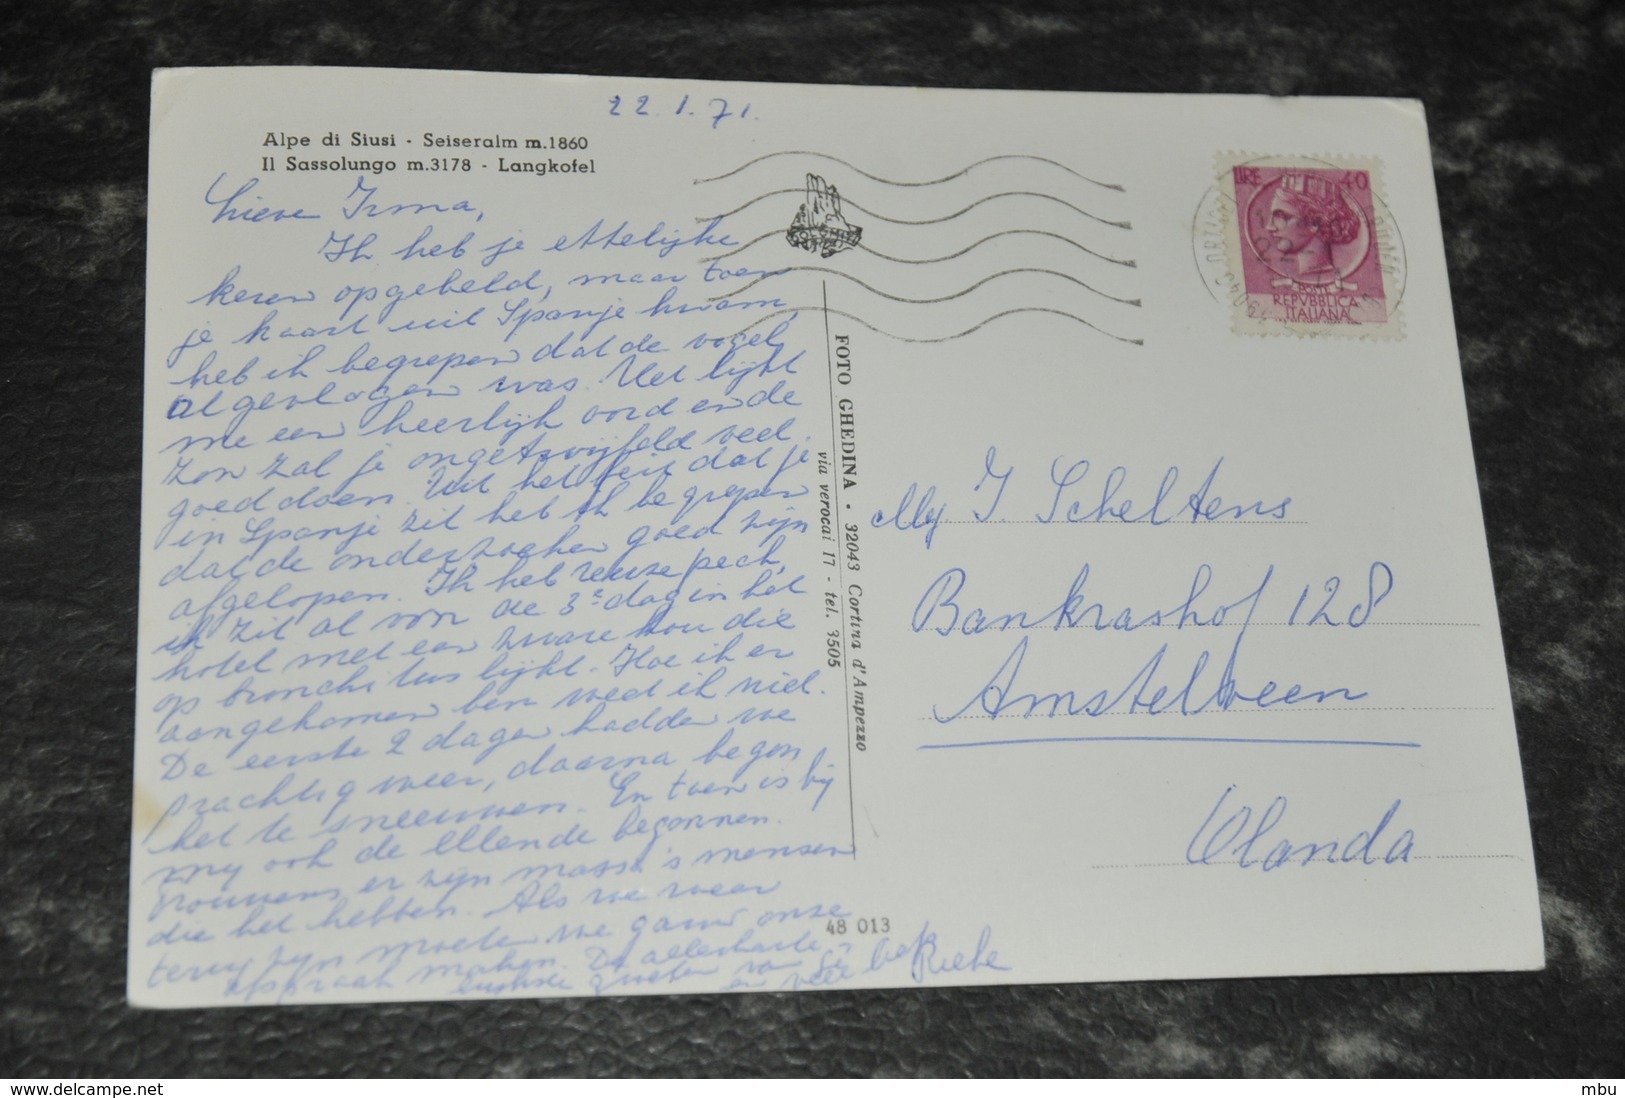 22.1.71.
Alpe di Siusi - Seiseralm m.1860
Il Sassolungo m.3178 - Langkofel
Lieve Irma,
Ik heb je ettelijke
keren opgebeld, maar toen
je kaart uit Spanje kwam,
heb ik begrepen dat de vogel
al gevlogen was. Het lijkt
me een heerlijk oord en de
zon zal je ongetwijfeld veel
goed doen. Uit het feit dat je
in Spanje zit heb ik begrepen
dat de onderzoeken goed zijn
afgelopen. Ik heb reuze pech,
ik zit al van de 3e dag in het
hotel met een zware kou die
op bronchitus lijkt. Hoe ik er
aangekomen ben weet ik niet.
De eerste 2 dagen hadden we
prachtig weer, daarna begon
het te sneeuwen. En toen is bij
mij ook de ellende begonnen.
Trouwens er zijn massa's mensen
die het hebben. Als we weer
terug zijn moeten we gauw onze
afspraak maken. De allerhartelijkste
groeten van
en veel
Riehe
FOTO GHEDINA - 32043 Cortina d'Ampezzo
via verocai 17 - tel. 3505
48 013
LIRE 40
REPVBBLICA
ITALIANA
22-1
Mej I. Scheltens
Bankrashof 128
Amstelveen
Olanda
mbu